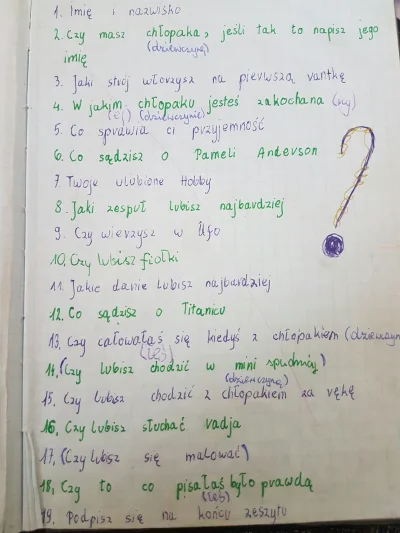 1. Imię i nazwisko
2. Czy masz chłopaka, jeśli tak to napisz jego
(dziewczynę)
imię
3. Jaki strój włorzysz na pierwszą rantkę
4. W jakim chłopaku jesteś zakochana (ny)
(ej) (dziewczynie)
5. Co sprawia ci przyjemność
6. Co sądzisz o Pameli Anderson
7. Twoje ulubione Hobby
8. Jaki zespuł lubisz najbardziej
9. Czy wierzysz w Ufo
10. Czy lubisz fiołki
11. Jakie danie lubisz najbardziej
12. Co sądzisz o Titanicu
13. Czy całowałaś się kiedyś z chłopakiem (dziewczyn
(łeś)
14. (Czy lubisz chodzić w mini spudnicy)
(dziewczyną)
15. Czy lubisz chodzić z chłopakiem za rękę
16. Czy lubisz słuchać radja
17. (Czy lubisz się malować)
18. Czy to co pisałaś było prawdą
(łeś)
19. Podpisz się na końcu zeszytu
?